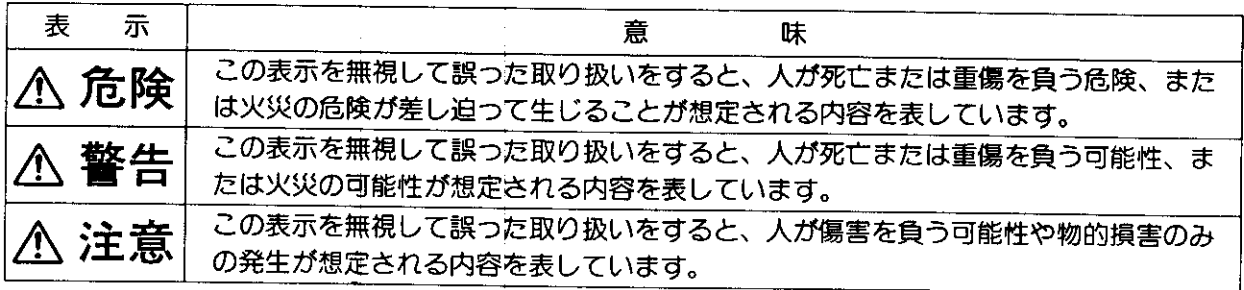 表 示 意 味
⚠ 危険 この表示を無視して誤った取り扱いをすると、人が死亡または重傷を負う危険、また
は火災の危険が差し迫って生じることが想定される内容を表しています。
⚠ 警告 この表示を無視して誤った取り扱いをすると、人が死亡または重傷を負う可能性、ま
たは火災の可能性が想定される内容を表しています。
⚠ 注意 この表示を無視して誤った取り扱いをすると、人が傷害を負う可能性や物的損害のみ
の発生が想定される内容を表しています。